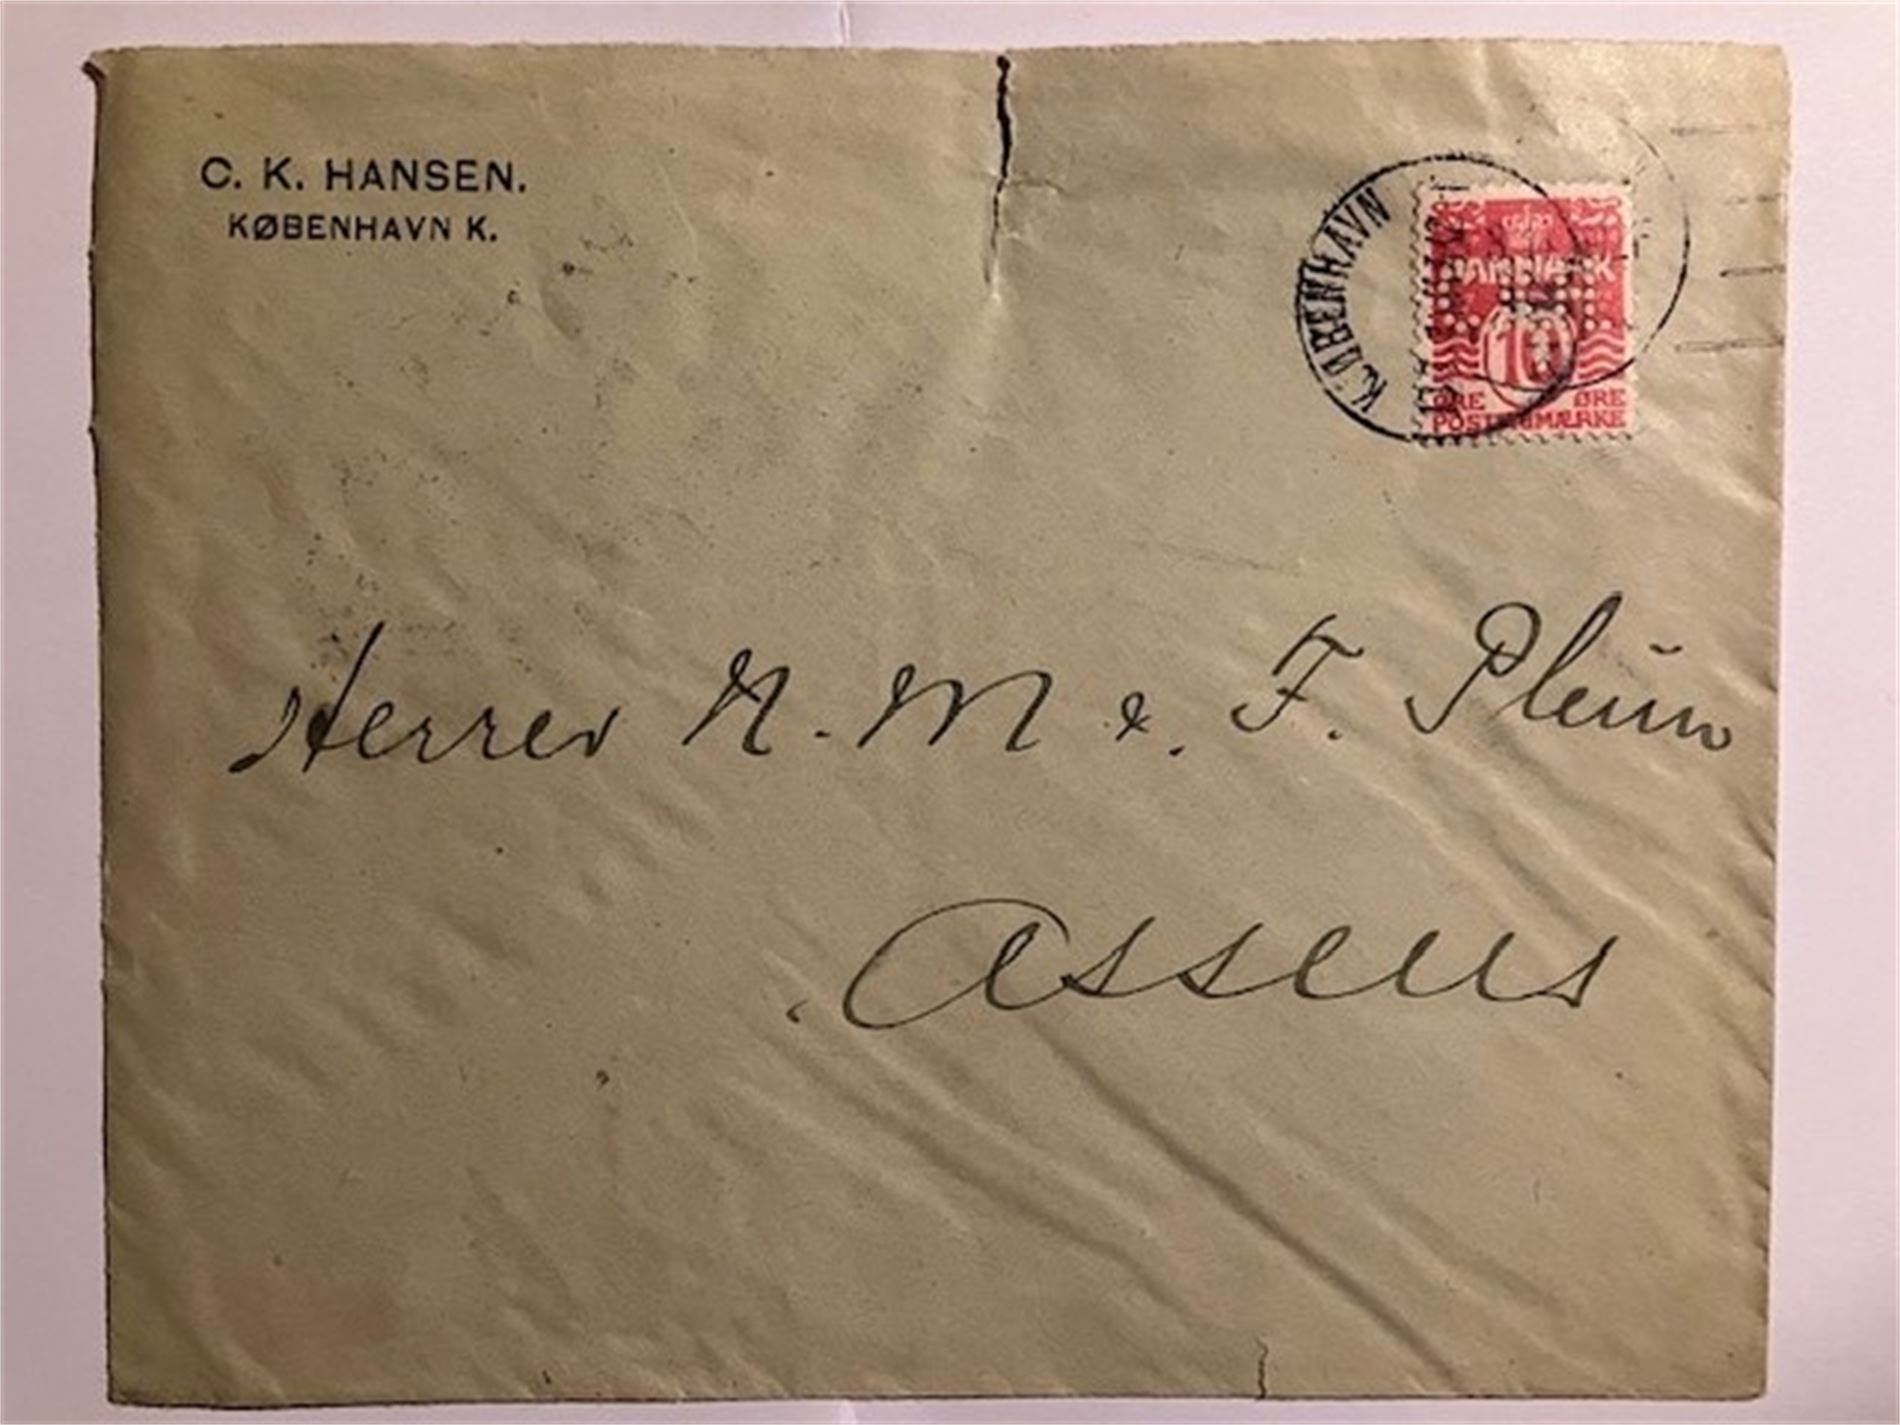 C. K. HANSEN.
KØBENHAVN K.
KJØBENHAVN
DANMARK
10
ØRE ØRE
POSTFRIMÆRKE
Herrer N. M & F. Plum
Assens